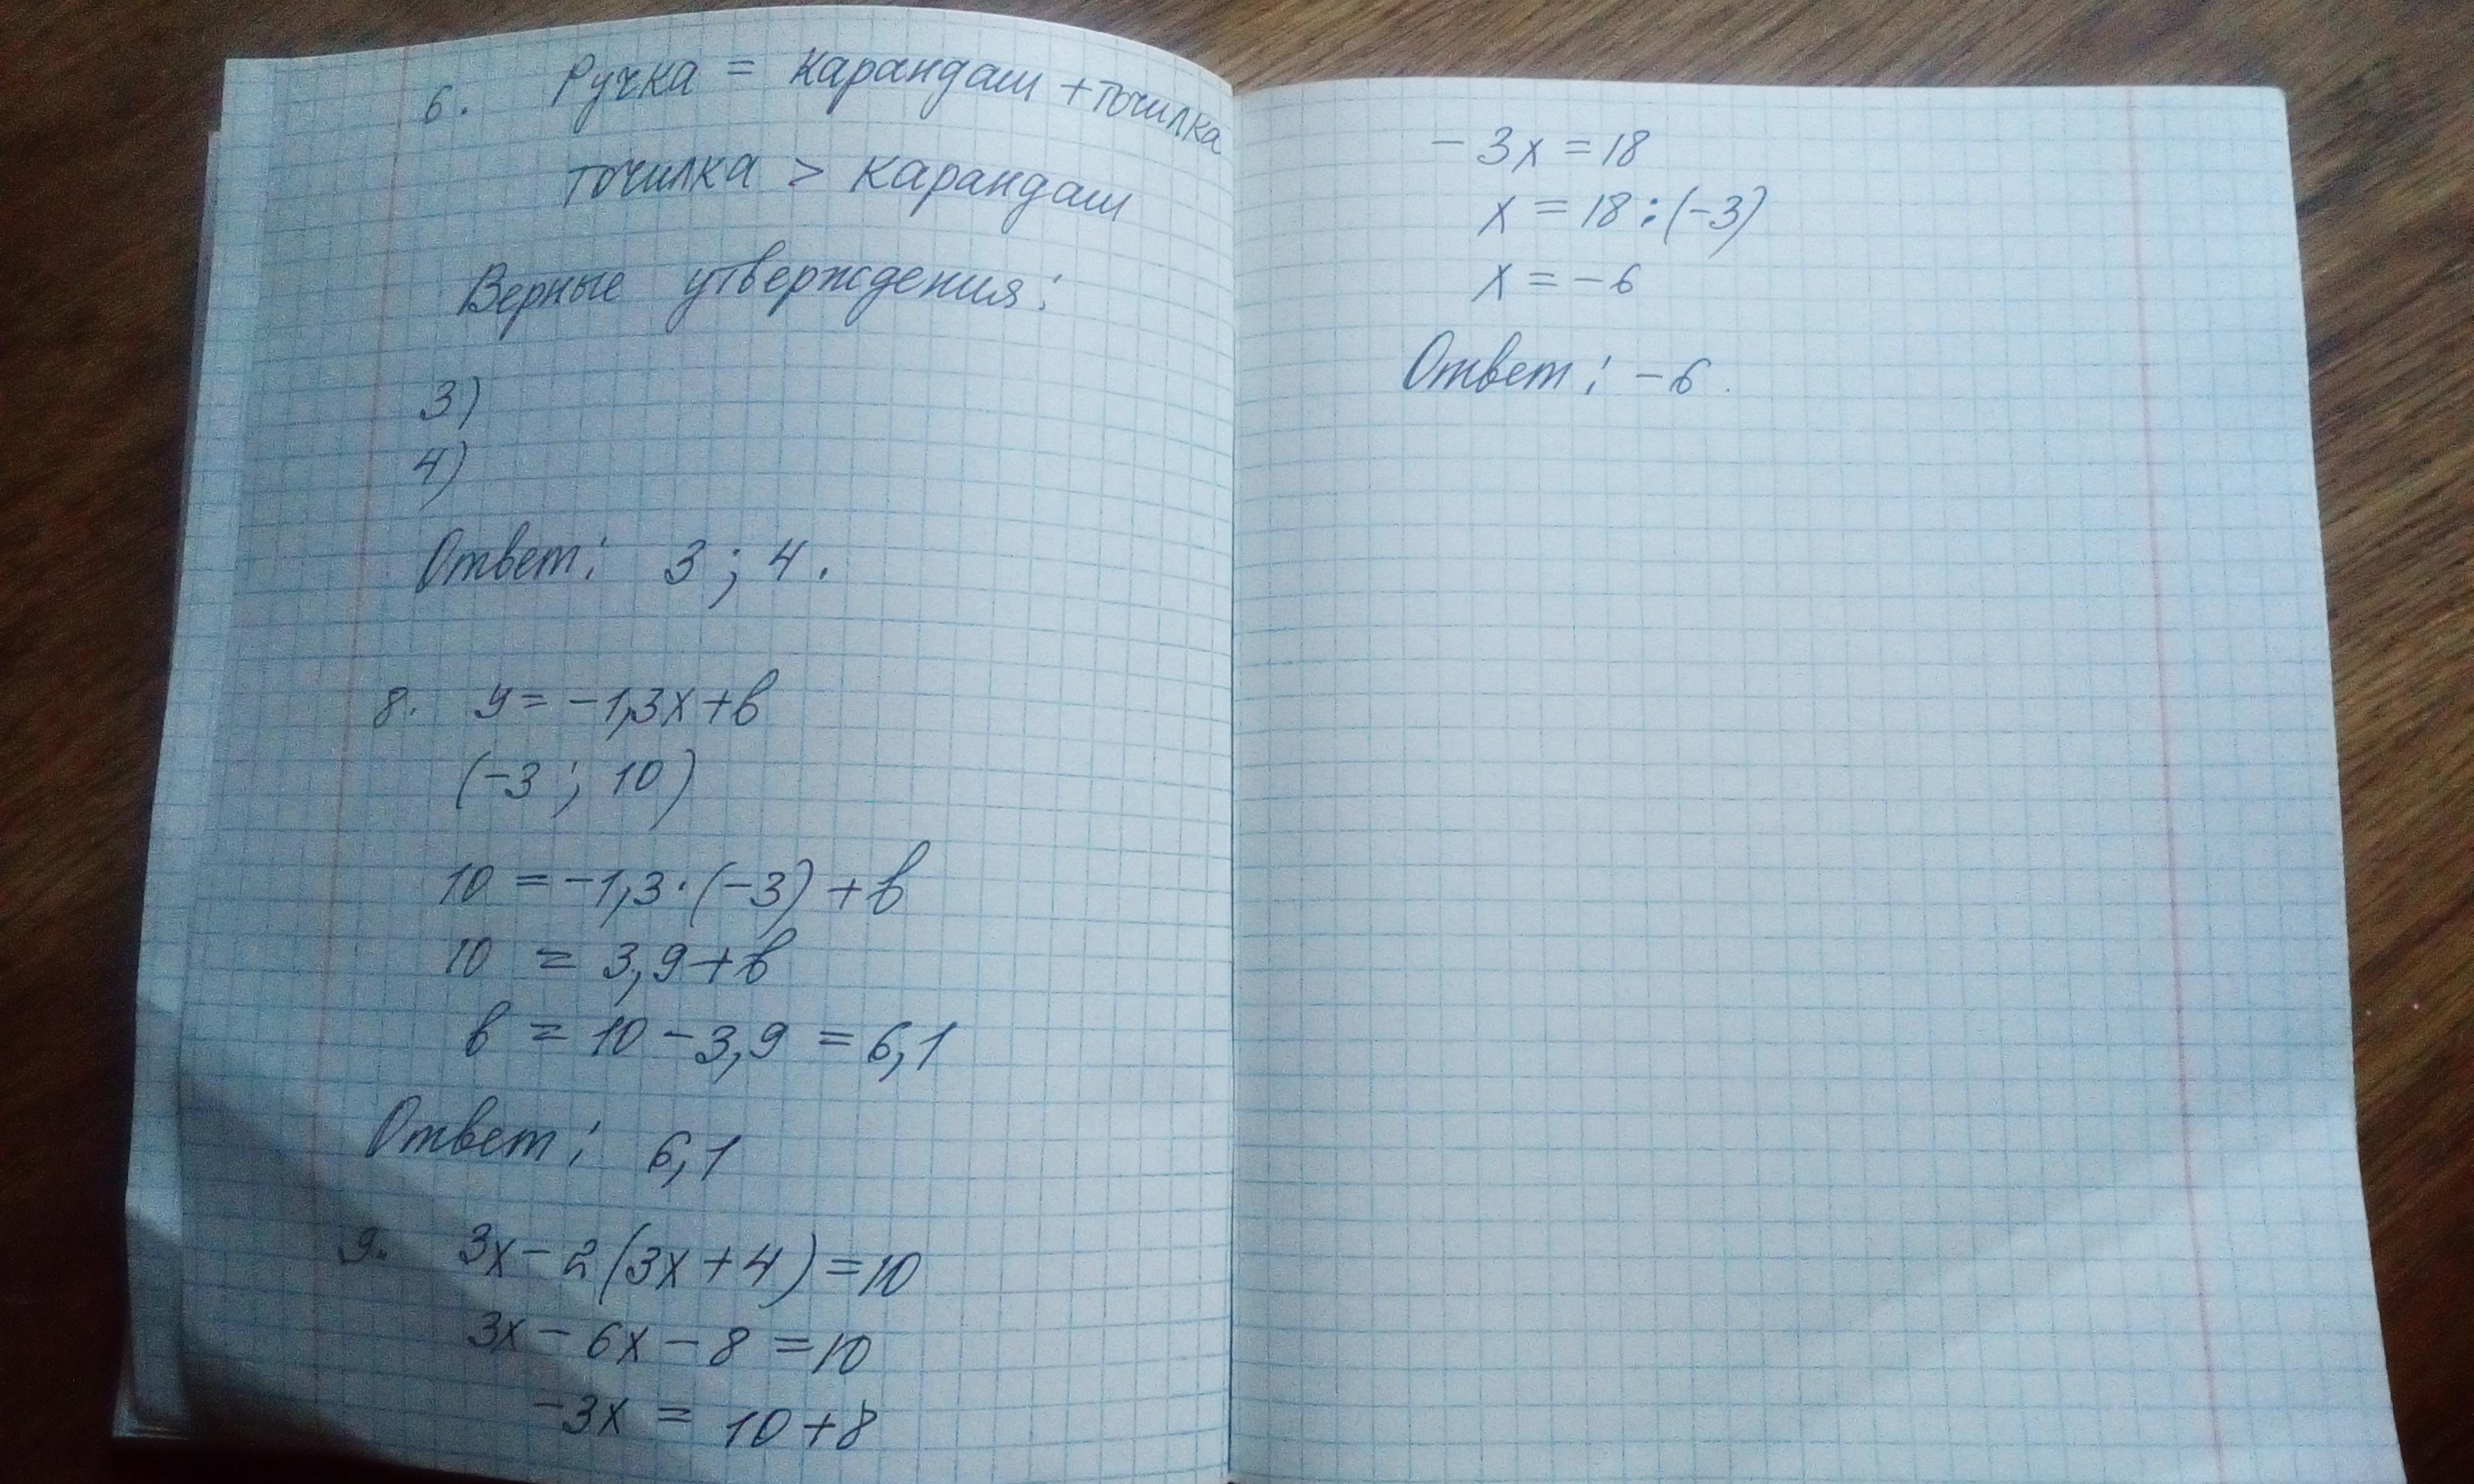 6. Ручка = Карандаш + точилка
точилка > карандаш
Верные утверждения:
3)
4)
Ответ: 3; 4.
8. y = -1,3x + b
(-3; 10)
10 = -1,3·(-3) + b
10 = 3,9 + b
b = 10 - 3,9 = 6,1
Ответ: 6,1
9. 3x - 2(3x + 4) = 10
3x - 6x - 8 = 10
-3x = 10 + 8
-3x = 18
x = 18 : (-3)
x = -6
Ответ: -6.